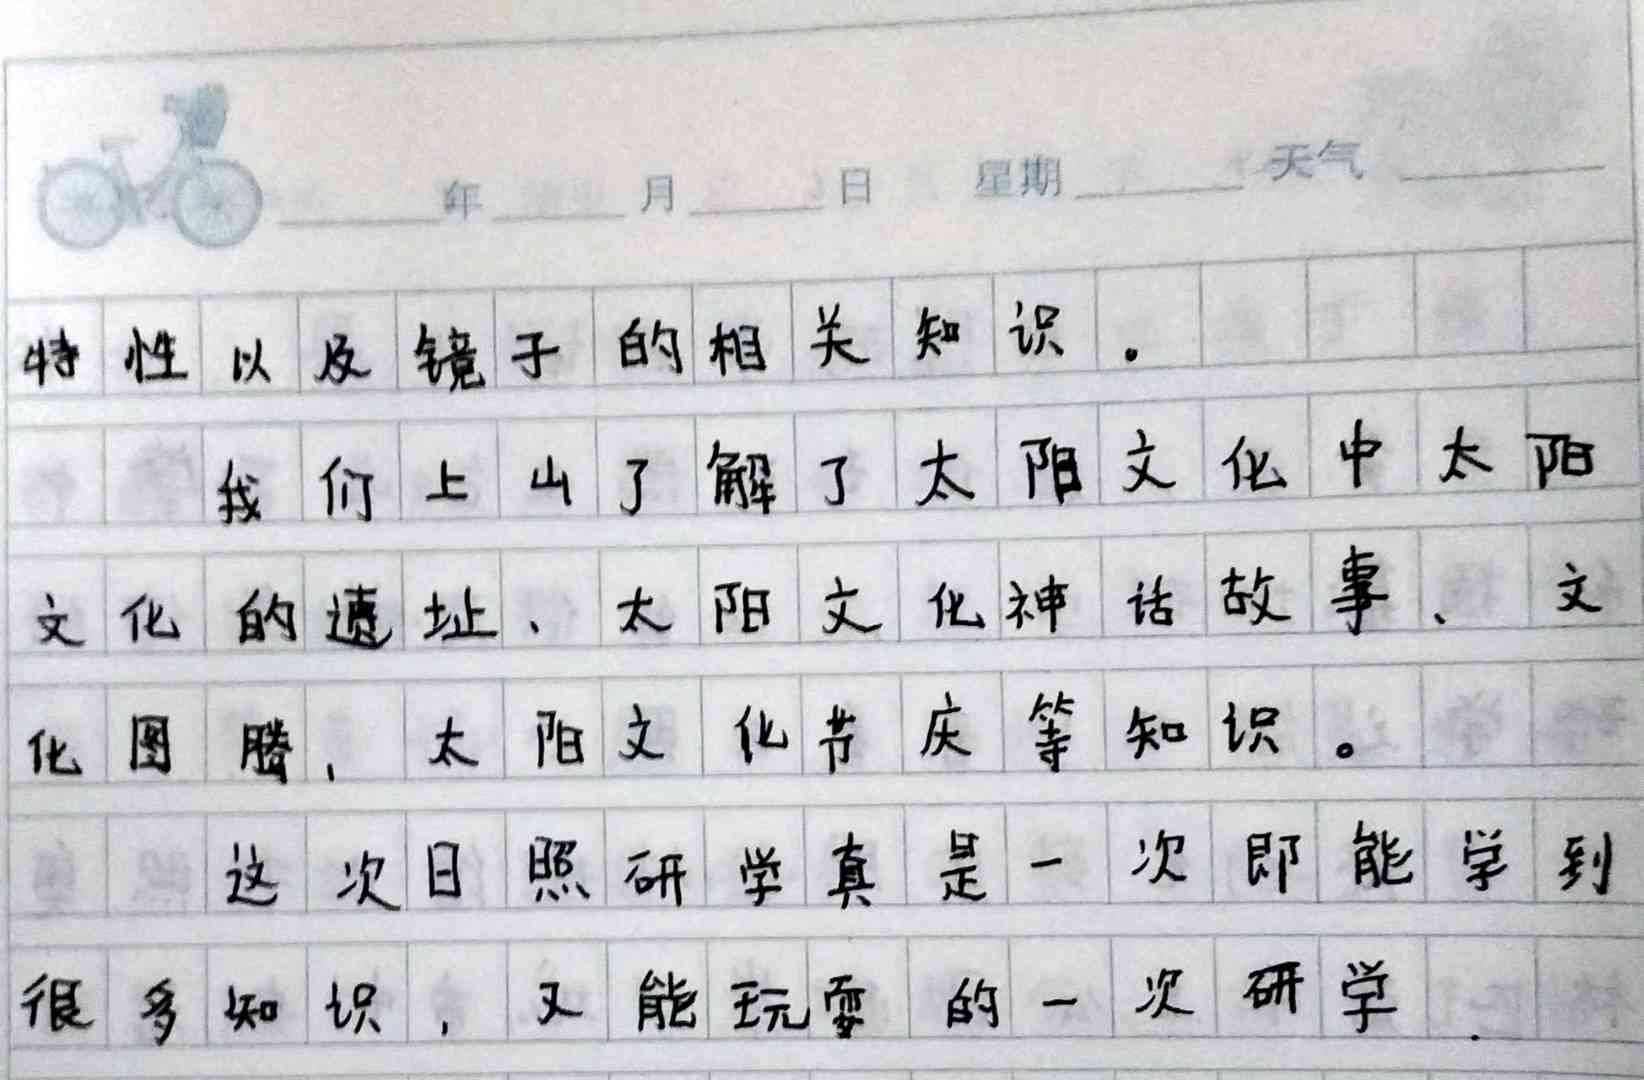 年 月 日 星期 天气
特性以及镜子的相关知识。
我们上山了解了太阳文化中太阳
文化的遗址、太阳文化神话故事、文
化图腾,太阳文化节庆等知识。
这次日照研学真是一次即能学到
很多知识,又能玩耍的一次研学.